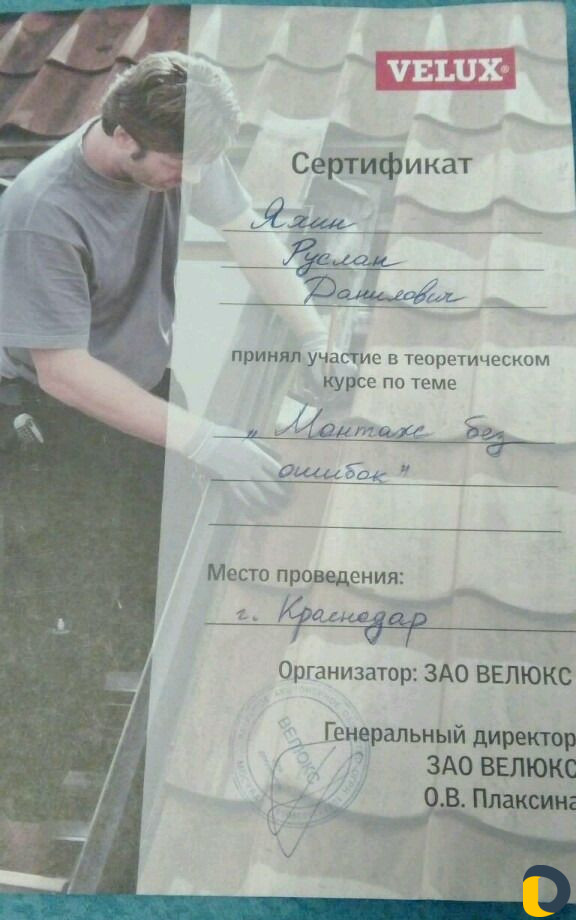 VELUX®
Сертификат
Яхин
Руслан
Данилович
принял участие в теоретическом
курсе по теме
„Монтаж без
ошибок"
Место проведения:
г. Краснодар
Организатор: ЗАО ВЕЛЮКС
ВЕЛЮКС
Генеральный директор
ЗАО ВЕЛЮКС
О.В. Плаксина